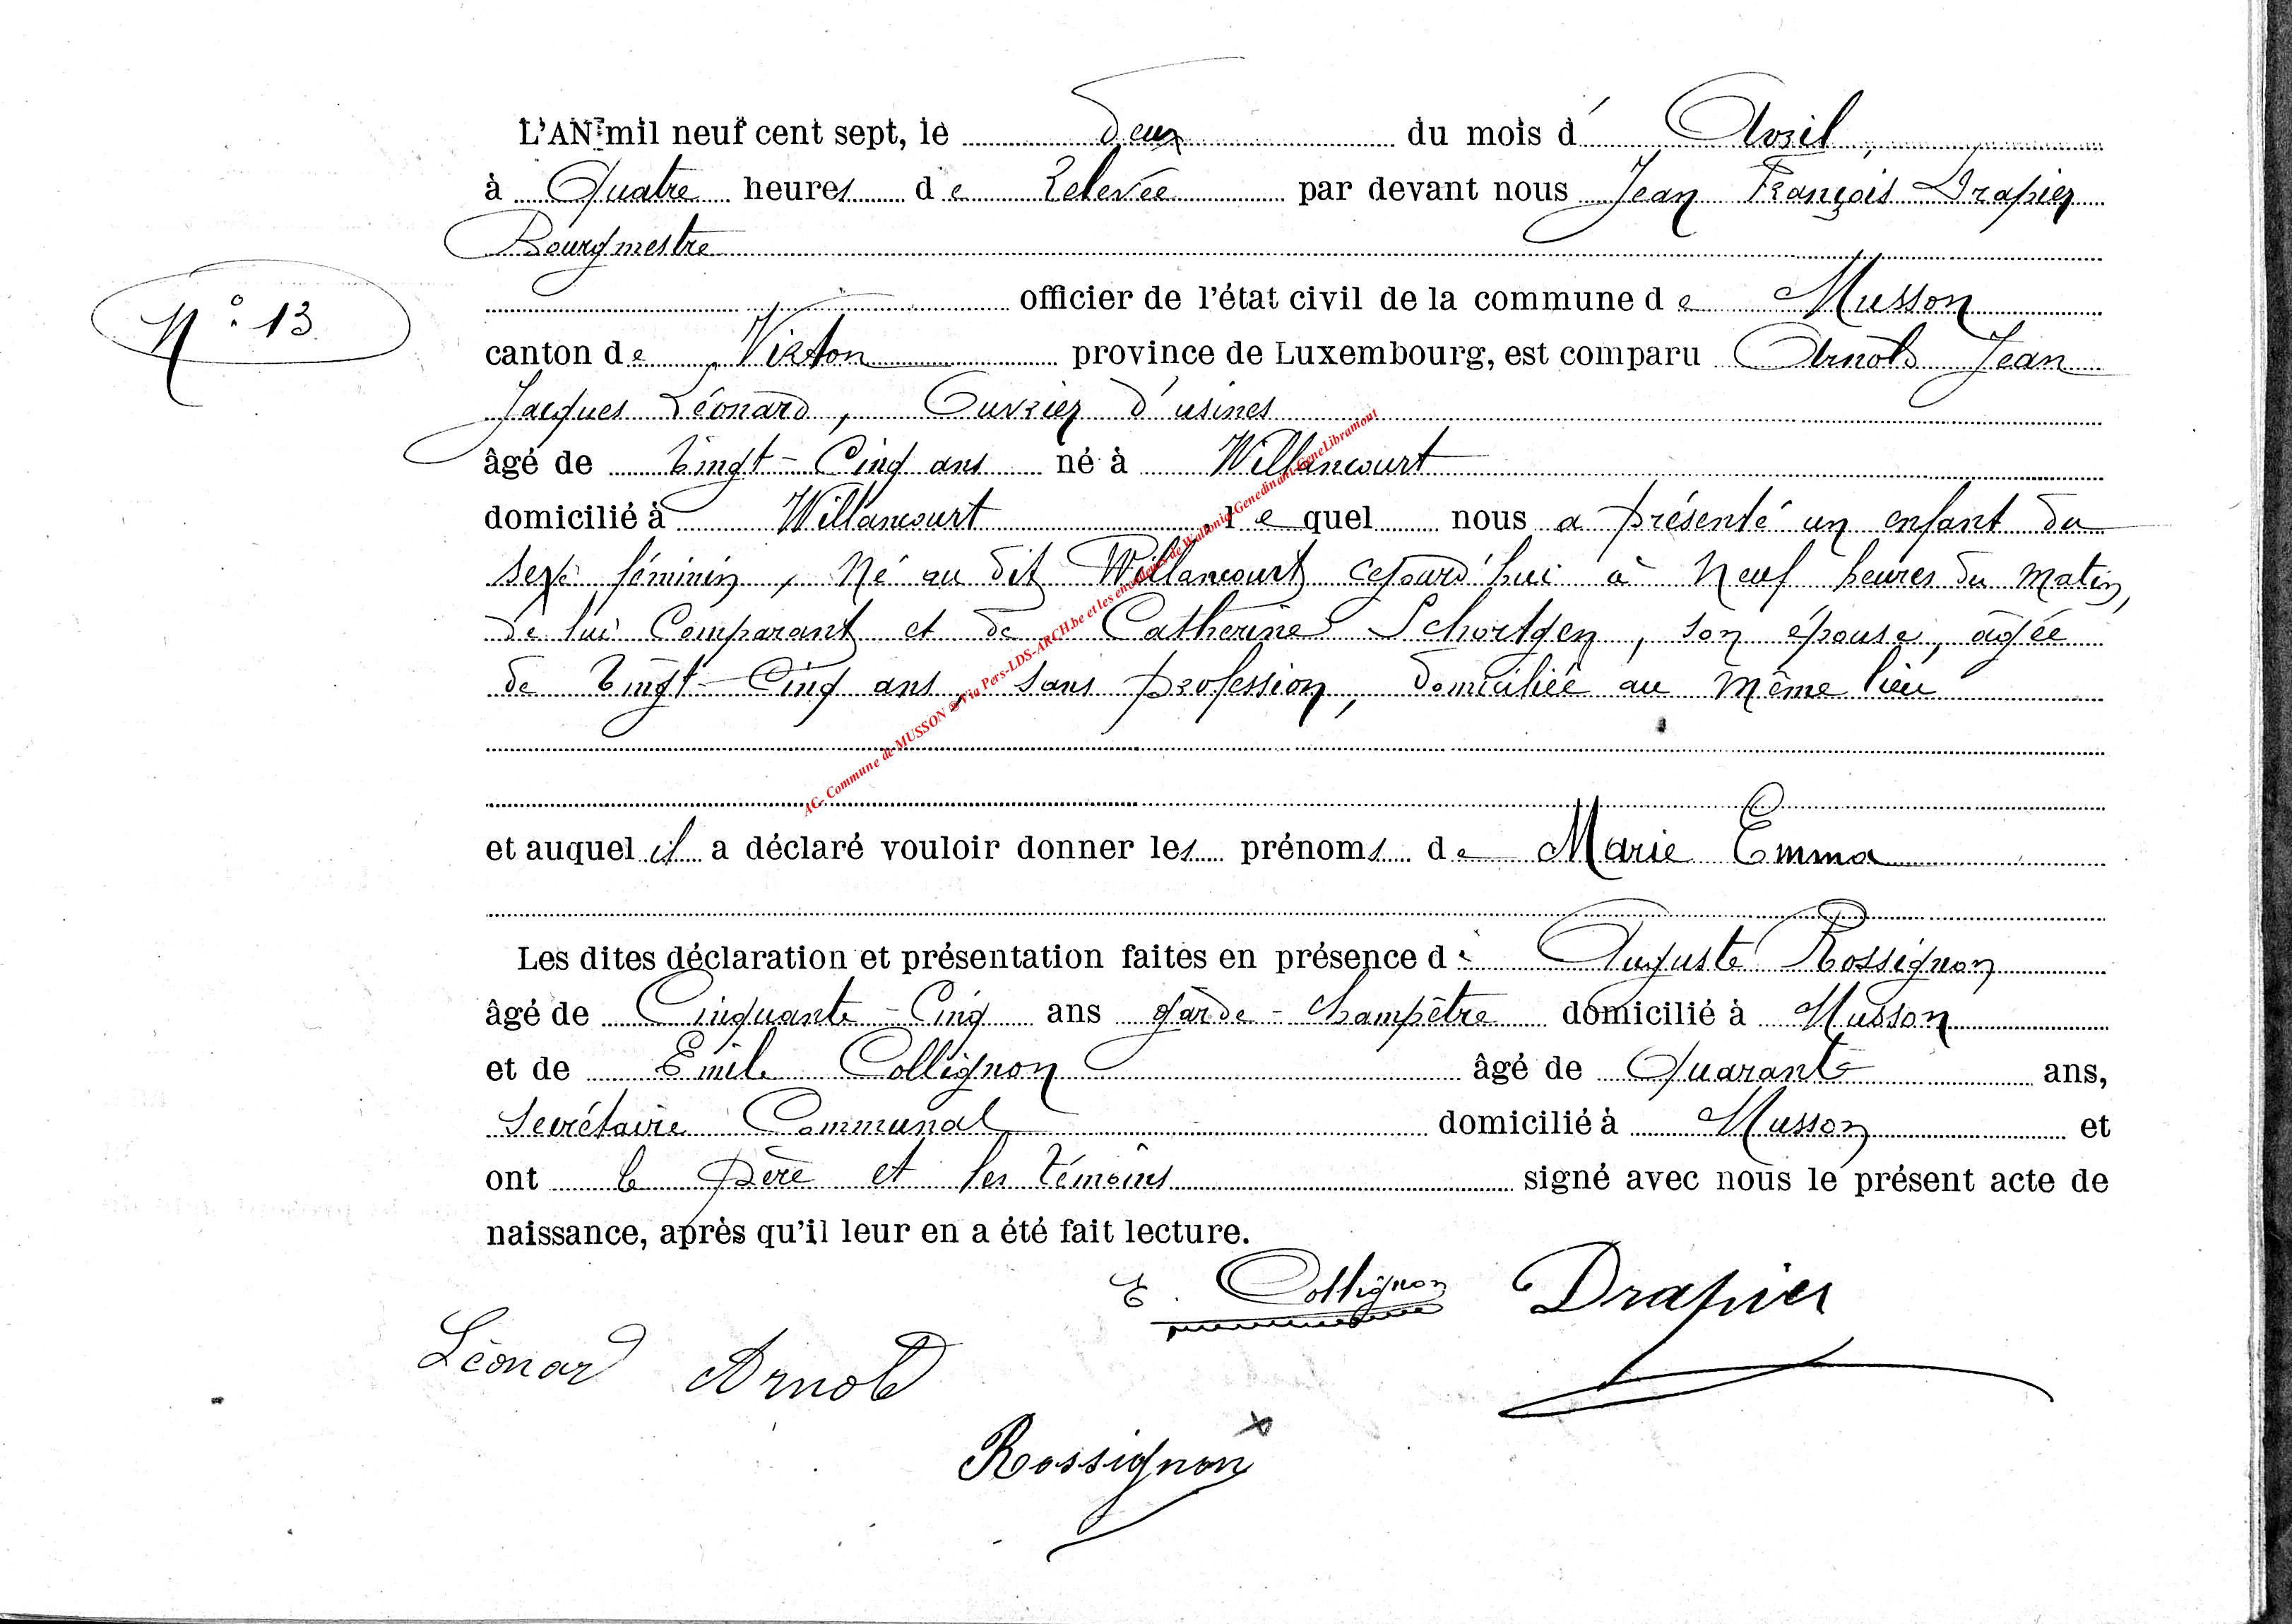 L'AN mil neuf cent sept, le deux du mois d' Avril,
à Quatre heures de Relevée par devant nous Jean François Drapier
Bourgmestre
officier de l'état civil de la commune de Musson
N° 13
canton de Virton province de Luxembourg, est comparu Arnold Jean
Jacques Léonard, Ouvrier d'usines
âgé de Vingt-Cinq ans né à Willancourt
domicilié à Willancourt, lequel nous a présenté un enfant du
sexe féminin, Né au dit Willancourt cejourd'hui à Neuf heures du matin,
de lui Comparant et de Catherine Schortgen, son épouse, âgée
de Vingt-Cinq ans, sans profession, domiciliée au même lieu
AC- Commune de MUSSON @ Via Pers-LDS-ARCH.be et les encodeurs de Wallonia-Genedinant-GeneLibramont
et auquel il a déclaré vouloir donner les prénoms de Marie Emma
Les dites déclaration et présentation faites en présence de Auguste Rossignon
âgé de Cinquante-Cinq ans garde-Champêtre domicilié à Musson
et de Emile Collignon âgé de Quarante ans,
Secrétaire Communal domicilié à Musson et
ont le père et les témoins signé avec nous le présent acte de
naissance, après qu'il leur en a été fait lecture.
E. Collignon Drapier
Léonard Arnold
Rossignon